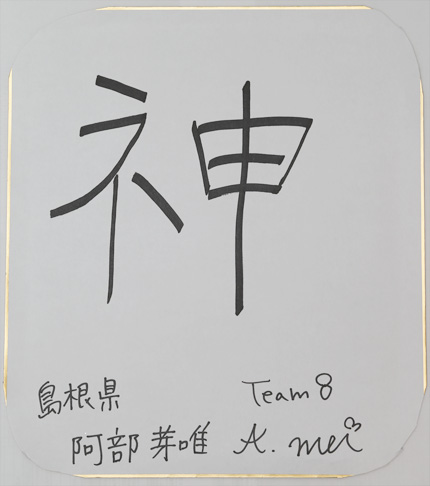 神
島根県 Team 8
阿部 芽唯 A. mei